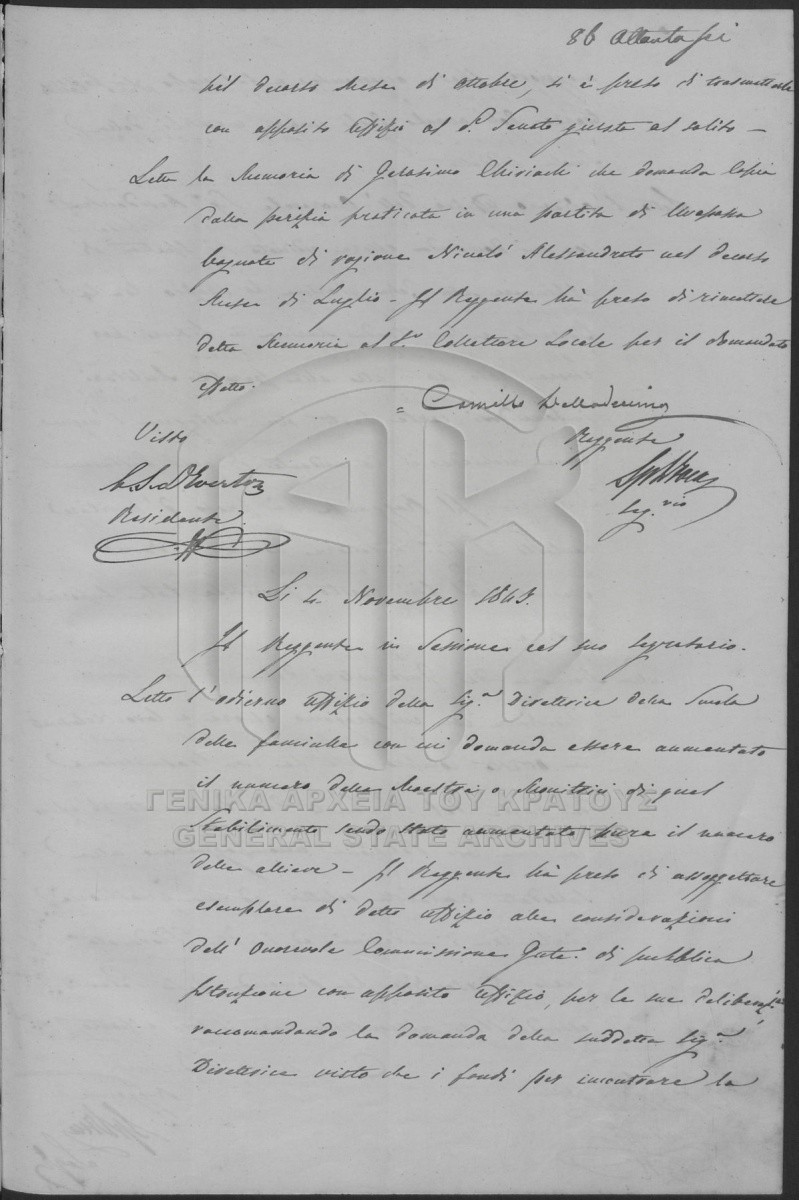 86 Ottantasei
pel decorso Mese di Ottobre, si è preso di trasmetterle
con apposito Uffizio al P.º Senato giusta al solito —
Letta la Memoria di Gerasimo Chiriachi che domanda Copia
della perizia praticata in una partita di Uvapassa
bagnata di ragione Nicolò Alessandrato nel decorso
Mese di Luglio — Il Reggente ha preso di rimettere
detta Memoria al S.r Collettore Locale per il domandato
effetto.
= Camillo Delladecima
Visto
Reggente
Residente
Seg.rio
Li 4. Novembre 1843.
Il Reggente in Sessione col suo Segretario.
Letto l'odierno Uffizio della Sig.ª Direttrice della Scuola
delle fanciulle con cui domanda essere aumentato
il numero delle Maestre, o Monitrici di quel
Stabilimento sendo stato aumentato pure il numero
delle allieve — Il Reggente ha preso di assoggettare
esemplare di detto Uffizio alle considerazioni
dell' Onorevole Commissione Gnle. di pubblica
Istruzione con apposito Uffizio, per le sue deliberaz.ni
raccomandando la domanda della suddetta Sig.ª
Direttrice visto che i fondi per incontrare la
ΓΕΝΙΚΑ ΑΡΧΕΙΑ ΤΟΥ ΚΡΑΤΟΥΣ
GENERAL STATE ARCHIVES